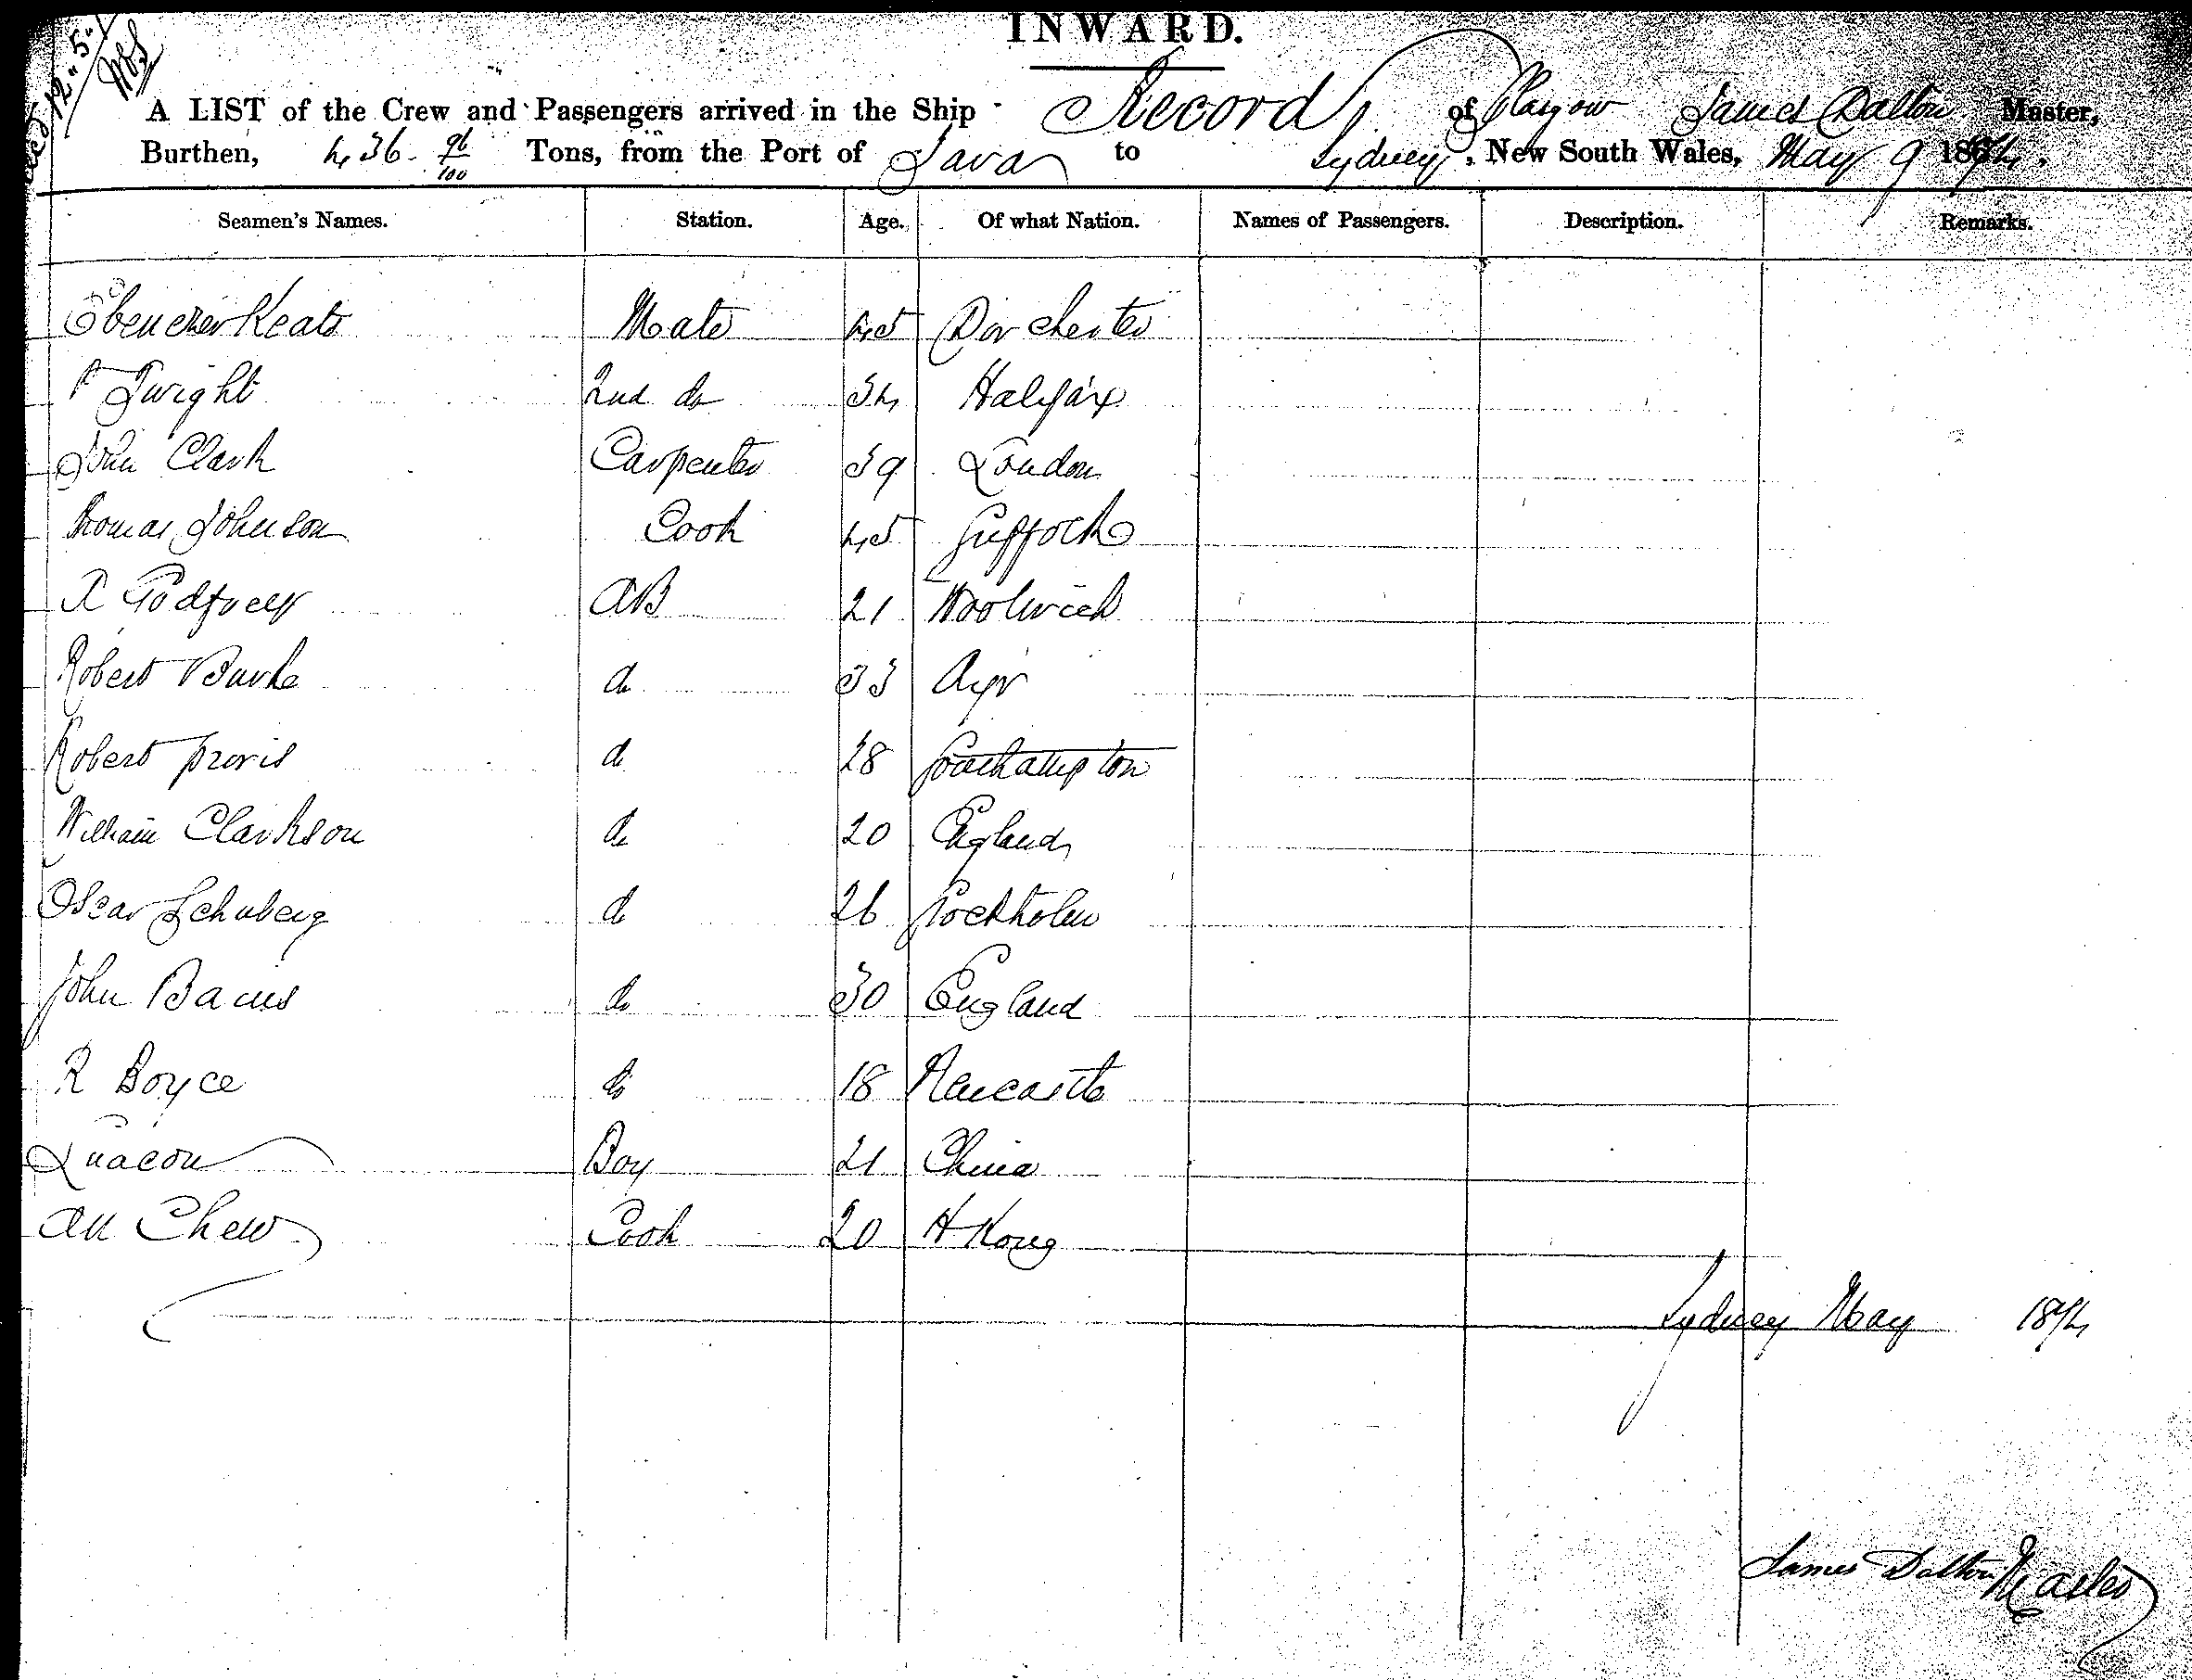 INWARD.
A LIST of the Crew and Passengers arrived in the Ship Record of Glasgow James Dalton Master,
Burthen, 436 96/100 Tons, from the Port of Java to Sydney, New South Wales, May 9 1874.
Seamen's Names. Station. Age. Of what Nation. Names of Passengers. Description. Remarks.
Ebenezer Keats Mate 45 Dorchester
Twight 2nd do 34 Halifax
John Clark Carpenter 39 London
Thomas Johnson Cook 45
R Godfrey AB 21 Woolwich
Robert Burke do 33 Ayr
Robert Provis do 28 Southampton
William Clarkson do 20 England
Oscar Schuberg do 26 Stockholm
John Bacus do 30 England
R Boyce do 18 Newcastle
Quacon Boy 21 China
Ah Chew Cook 20 H Kong
Sydney May 1874
James Dalton Master